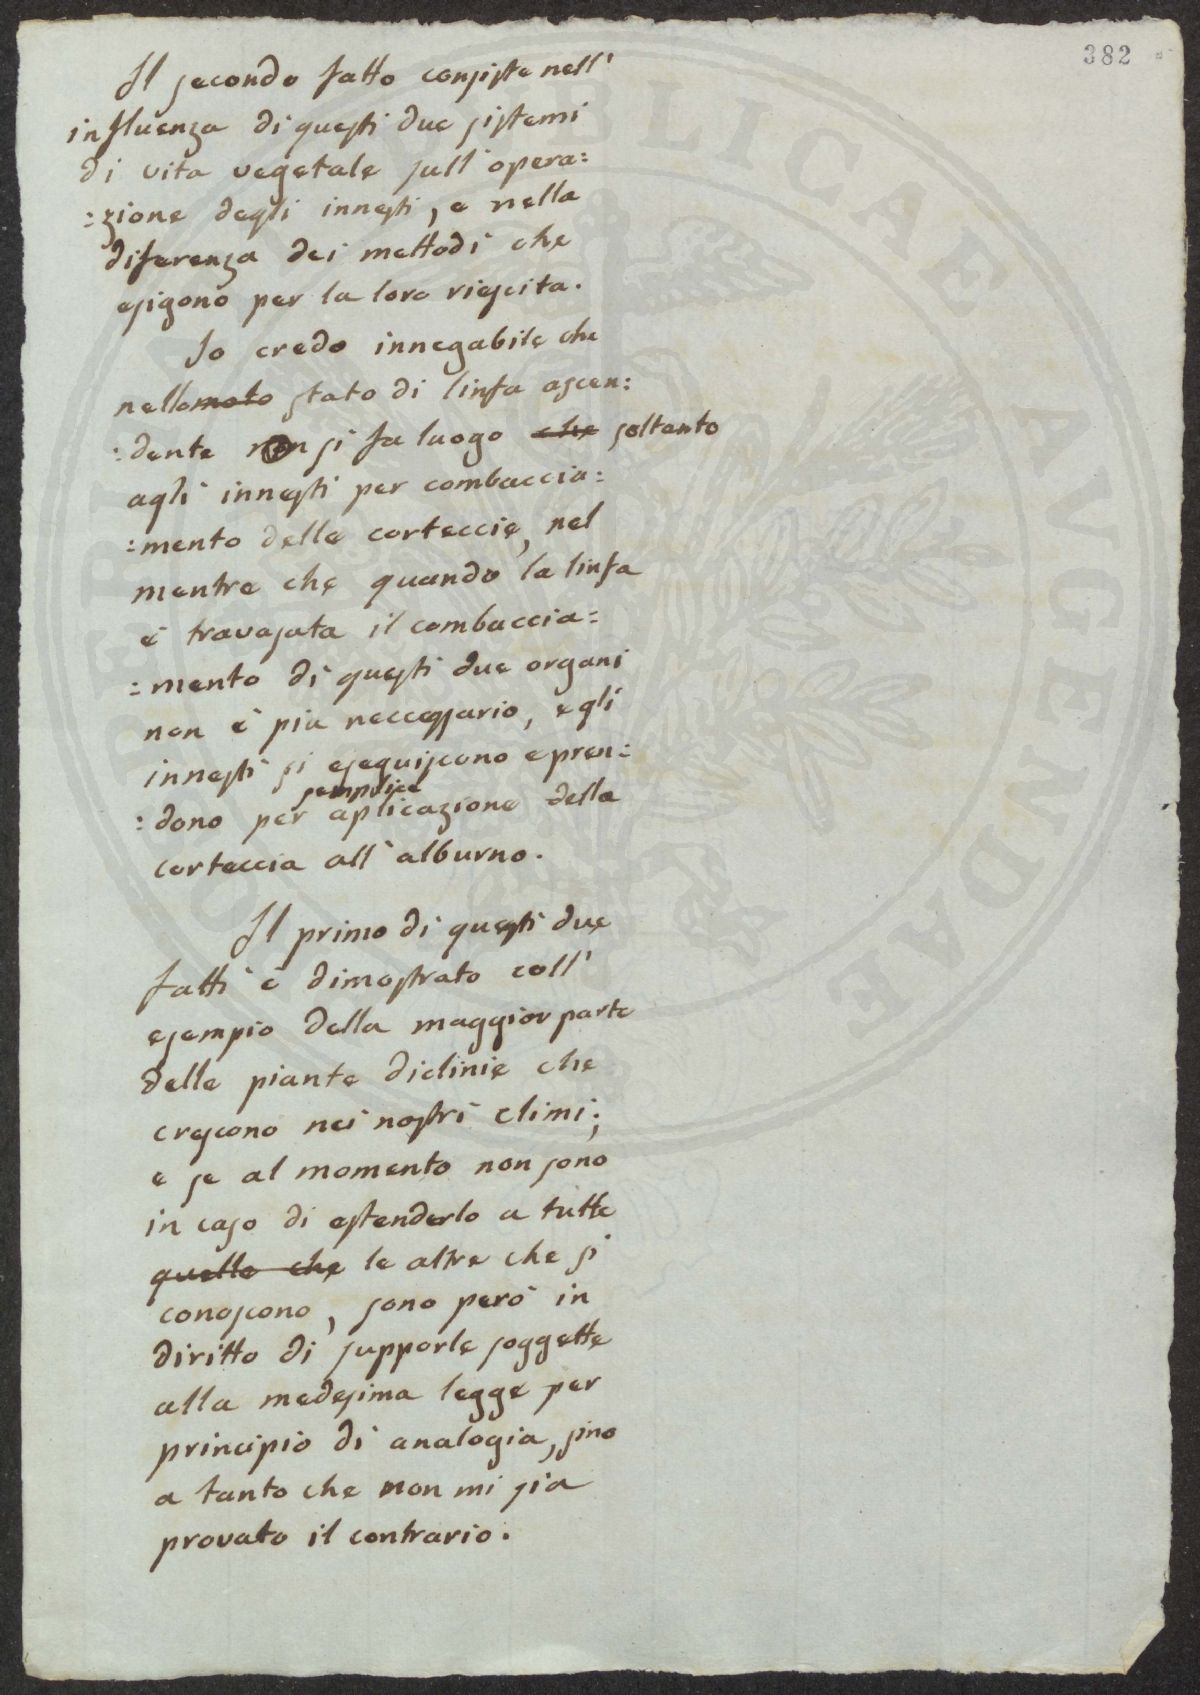 382
Il secondo fatto consiste nell'
influenza di questi due sistemi
di vita vegetale sull'opera=
=zione degli innesti, e nella
diferenza dei mettodi che
esigono per la loro riescita.
Io credo innegabile che
nello moto stato di linfa ascen=
=dente non si fa luogo che soltanto
agli innesti per combaccia=
=mento delle corteccie, nel
mentre che quando la linfa
è travasata il combaccia=
=mento di questi due organi
non è più neccessario, e gli
innesti si eseguiscono e pren=
=dono per semplice aplicazione della
corteccia all'alburno.
Il primo di questi due
fatti è dimostrato coll'
esempio della maggior parte
delle piante diclinie che
crescono nei nostri climi;
e se al momento non sono
in caso di estenderlo a tutte
quelle che le altre che si
conoscono, sono però in
diritto di supporle soggette
alla medesima legge per
principio di analogia, sino
a tanto che non mi sia
provato il contrario.